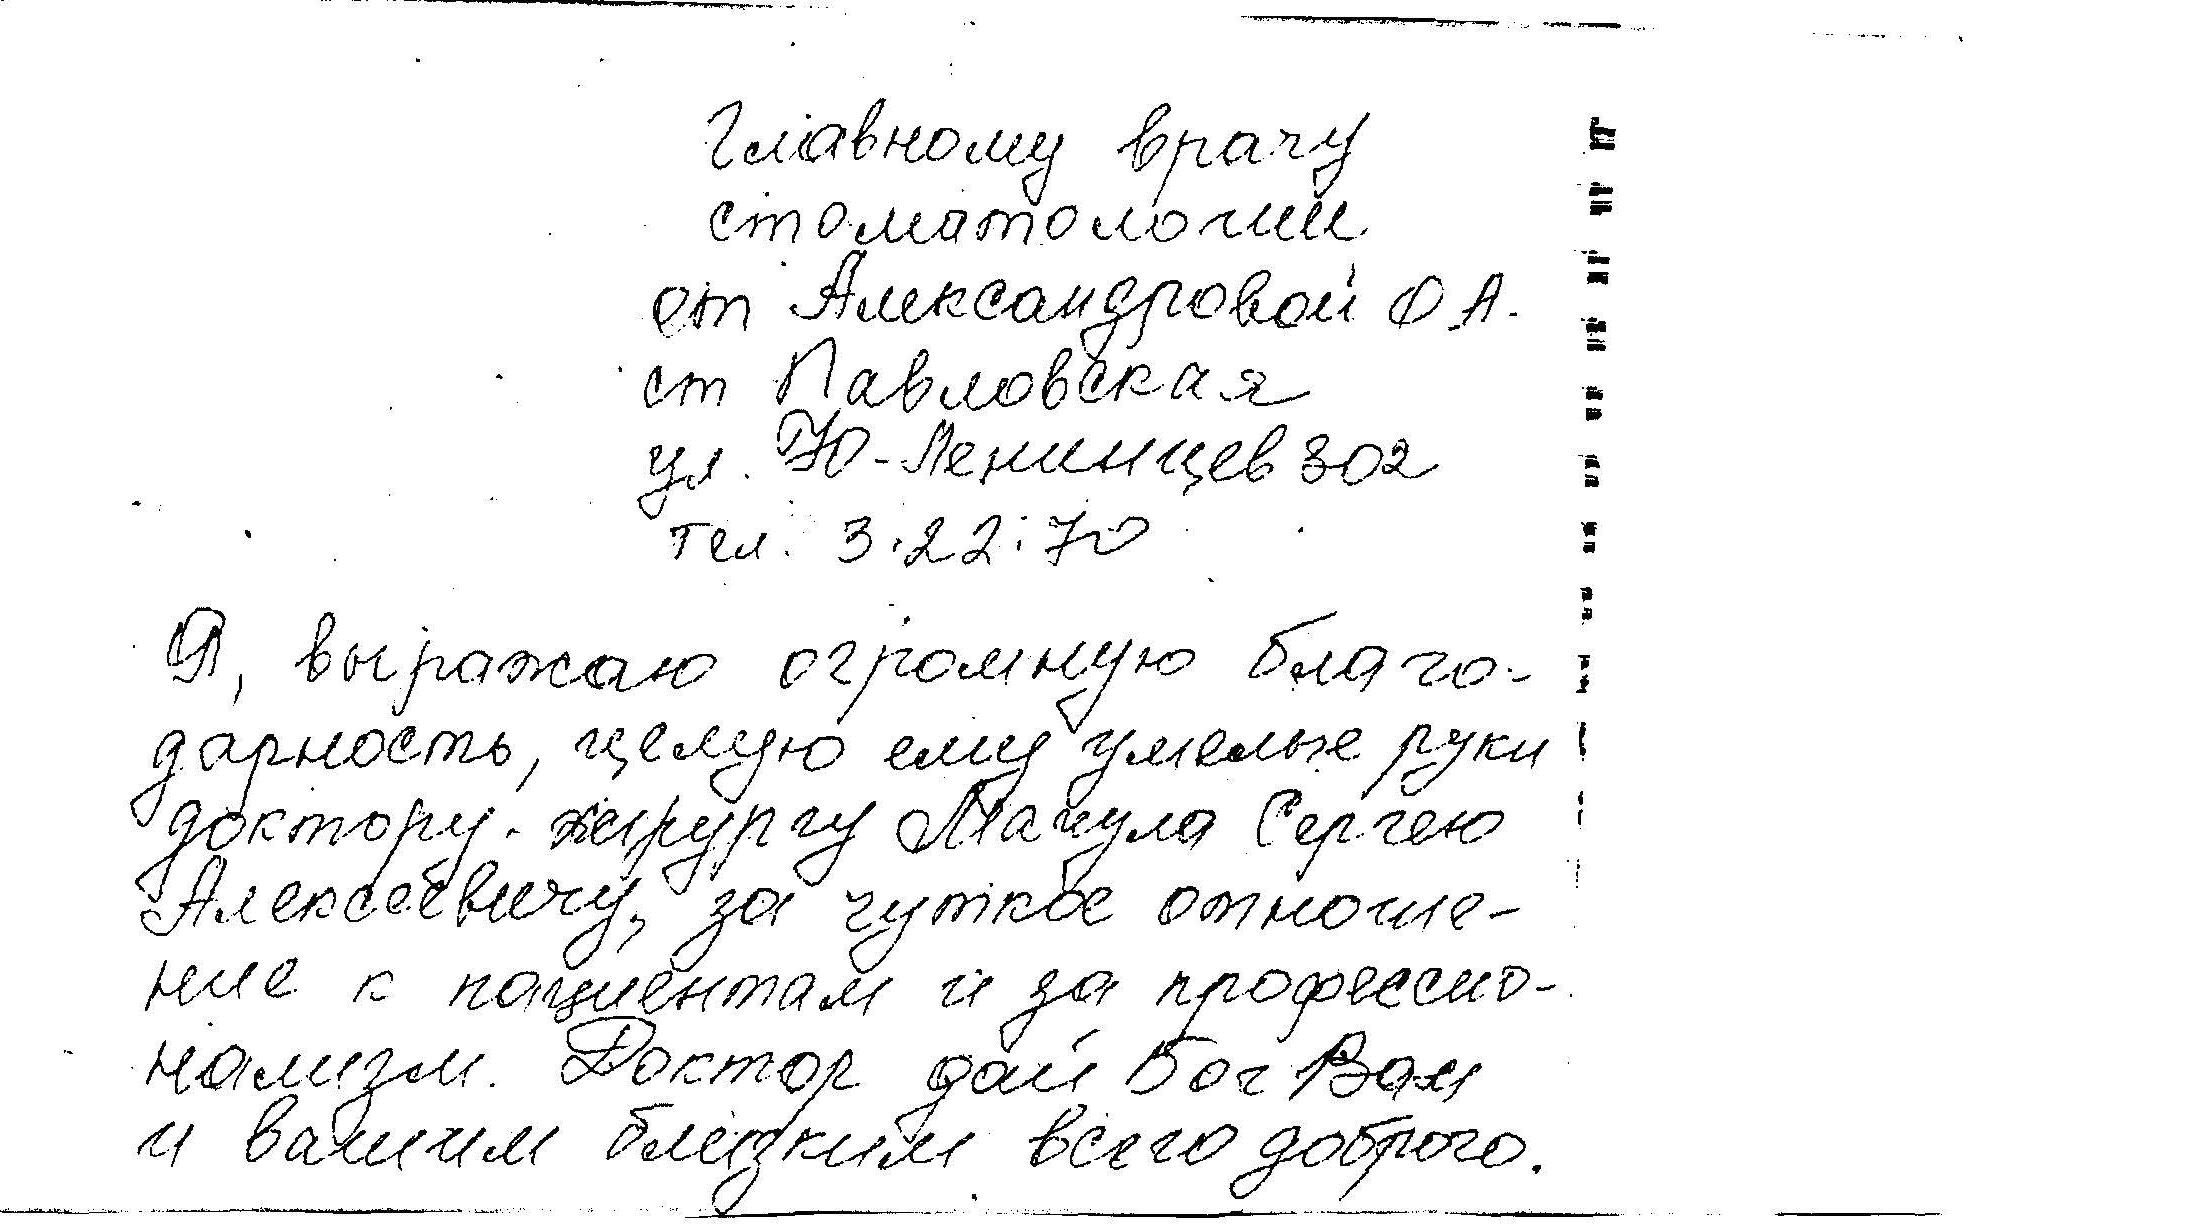 Главному врачу
стоматологии
от Александровой О А.
ст Павловская
ул. Ю-Ленинцев 302
тел. 3.22.70
Я, выражаю огромную благо-
дарность, целую ему умелые руки
доктору-хирургу Мачула Сергею
Алексеевичу, за чуткое отноше-
ние к пациентам и за профессио-
нализм. Доктор дай Бог Вам
и вашим близким всего доброго.